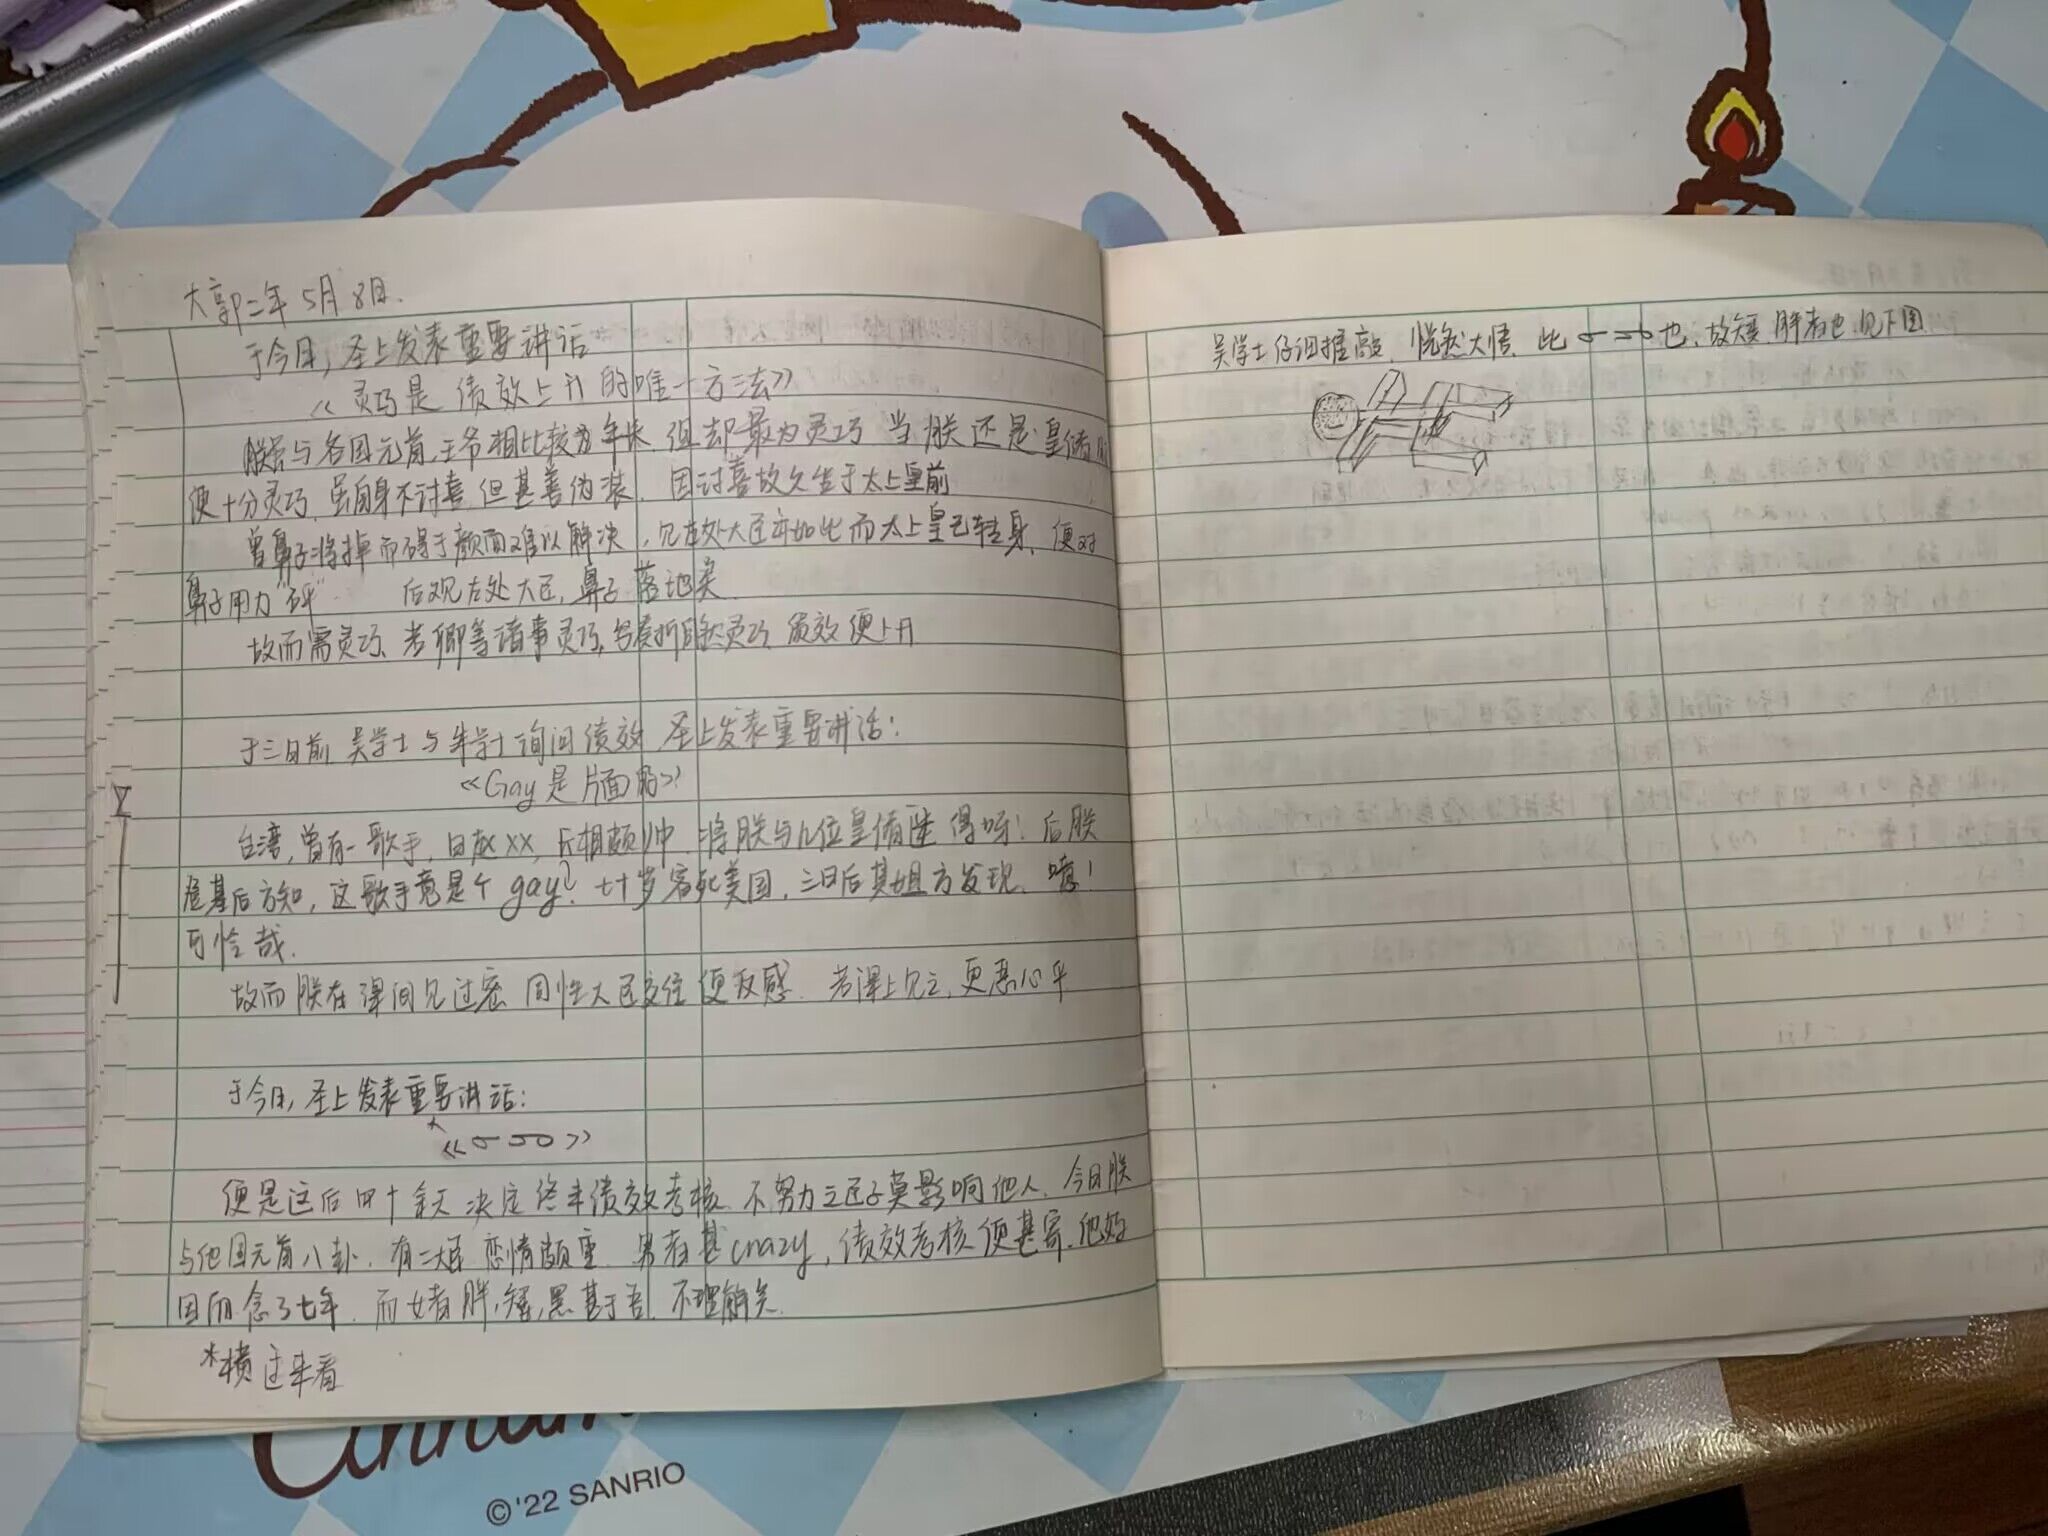 大郭二年 5月8日.
于今日，圣上发表重要讲话
《灵巧是绩效上升的唯一方法》
朕虽与各国元首、王爷相比较为年长，但却最为灵巧 当朕还是皇储时
便十分灵巧，虽自身不讨喜，但甚善伪装，因讨喜故久坐于太上皇前
曾鼻子将掉而碍于颜面难以解决，见左处大臣亦如此而太上皇已转身，便对
鼻子用力“砰” 后观左处大臣，鼻子落地矣
故而需灵巧、若卿等诸事灵巧, 灵巧，绩效便上升
于三日前 吴学士与朱学士询问绩效，圣上发表重要讲话：
《Gay是片面的》
台湾，曾有一歌手，曰赵XX，长相颇帅，将朕与几位皇储 得呀！后朕
登基后方知，这歌手竟是个gay？七十岁客死美国，三日后其姐方发现，噫！
可怜哉.
故而朕在课间见过密同性大臣交往便反感．若课上见之，更恶心乎
于今日，圣上发表重要讲话：
《 》
便是这后四十余天决定终末绩效考核，不努力之臣子莫影响他人，今日朕
与他国元首八卦，有二大臣恋情颇重，男者甚crazy，绩效考核便甚寄，他好
因而念了七年，而女者胖，矮，黑甚于吾，不理解矣.
*横过来看
吴学士仔细推敲，恍然大悟，此 也，故矮胖者也，见下图
Cinnam
©'22 SANRIO